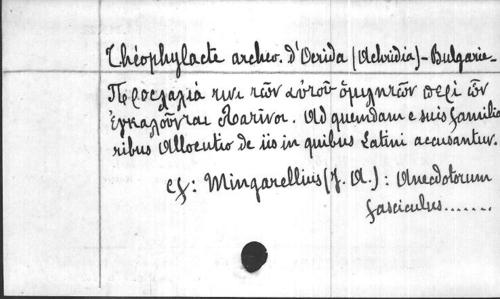 Théophylacte archev. d'Ocrida (Achridia) - Bulgarie -
Προσλαλιά τινι τῶν αὐτοῦ ὁμιλητῶν περὶ ὧν
ἐγκαλοῦνται Λατῖνοι. Ad quendam e suis familia
ribus Allocutio de iis in quibus Latini accusantur.
cf: Mingarellius (J. A.): Anecdotorum
fasciculus.......